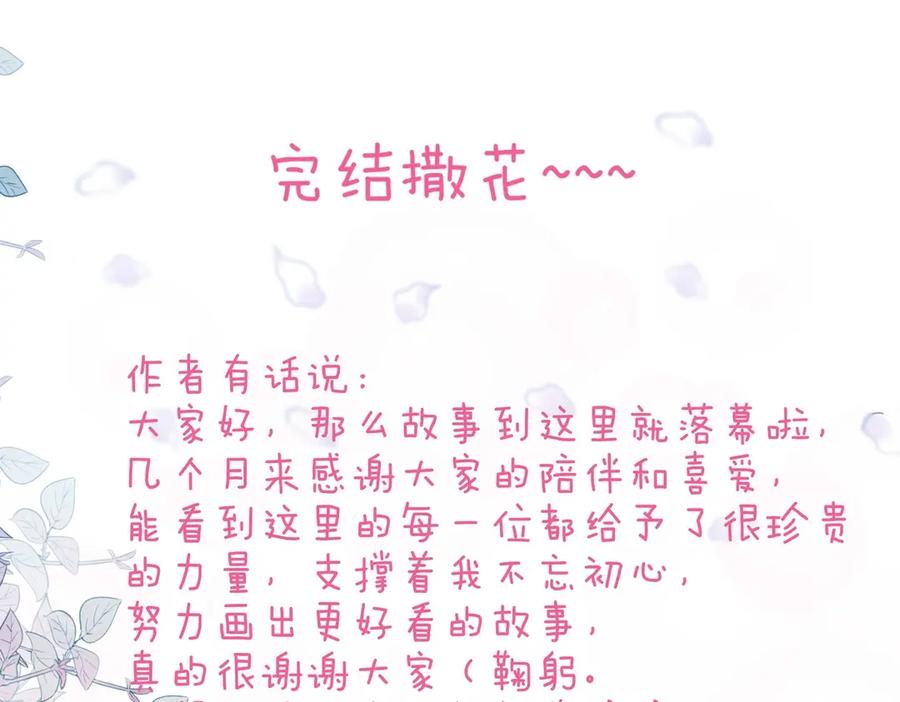 完结撒花~~~
作者有话说：
大家好，那么故事到这里就落幕啦，
几个月来感谢大家的陪伴和喜爱，
能看到这里的每一位都给予了很珍贵
的力量，支撑着我不忘初心，
努力画出更好看的故事，
真的很谢谢大家（鞠躬。